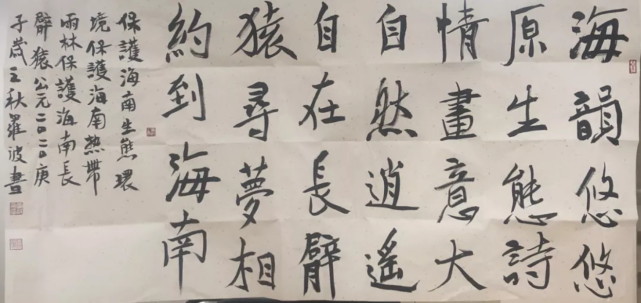 海韻悠悠
原生態詩
情畫意大
自然逍遥
自在長臂
猿尋夢相
約到海南
保護海南生態環
境保護海南熱带
雨林保護海南長
臂猿公元二〇二〇庚
子歲之秋羅波書